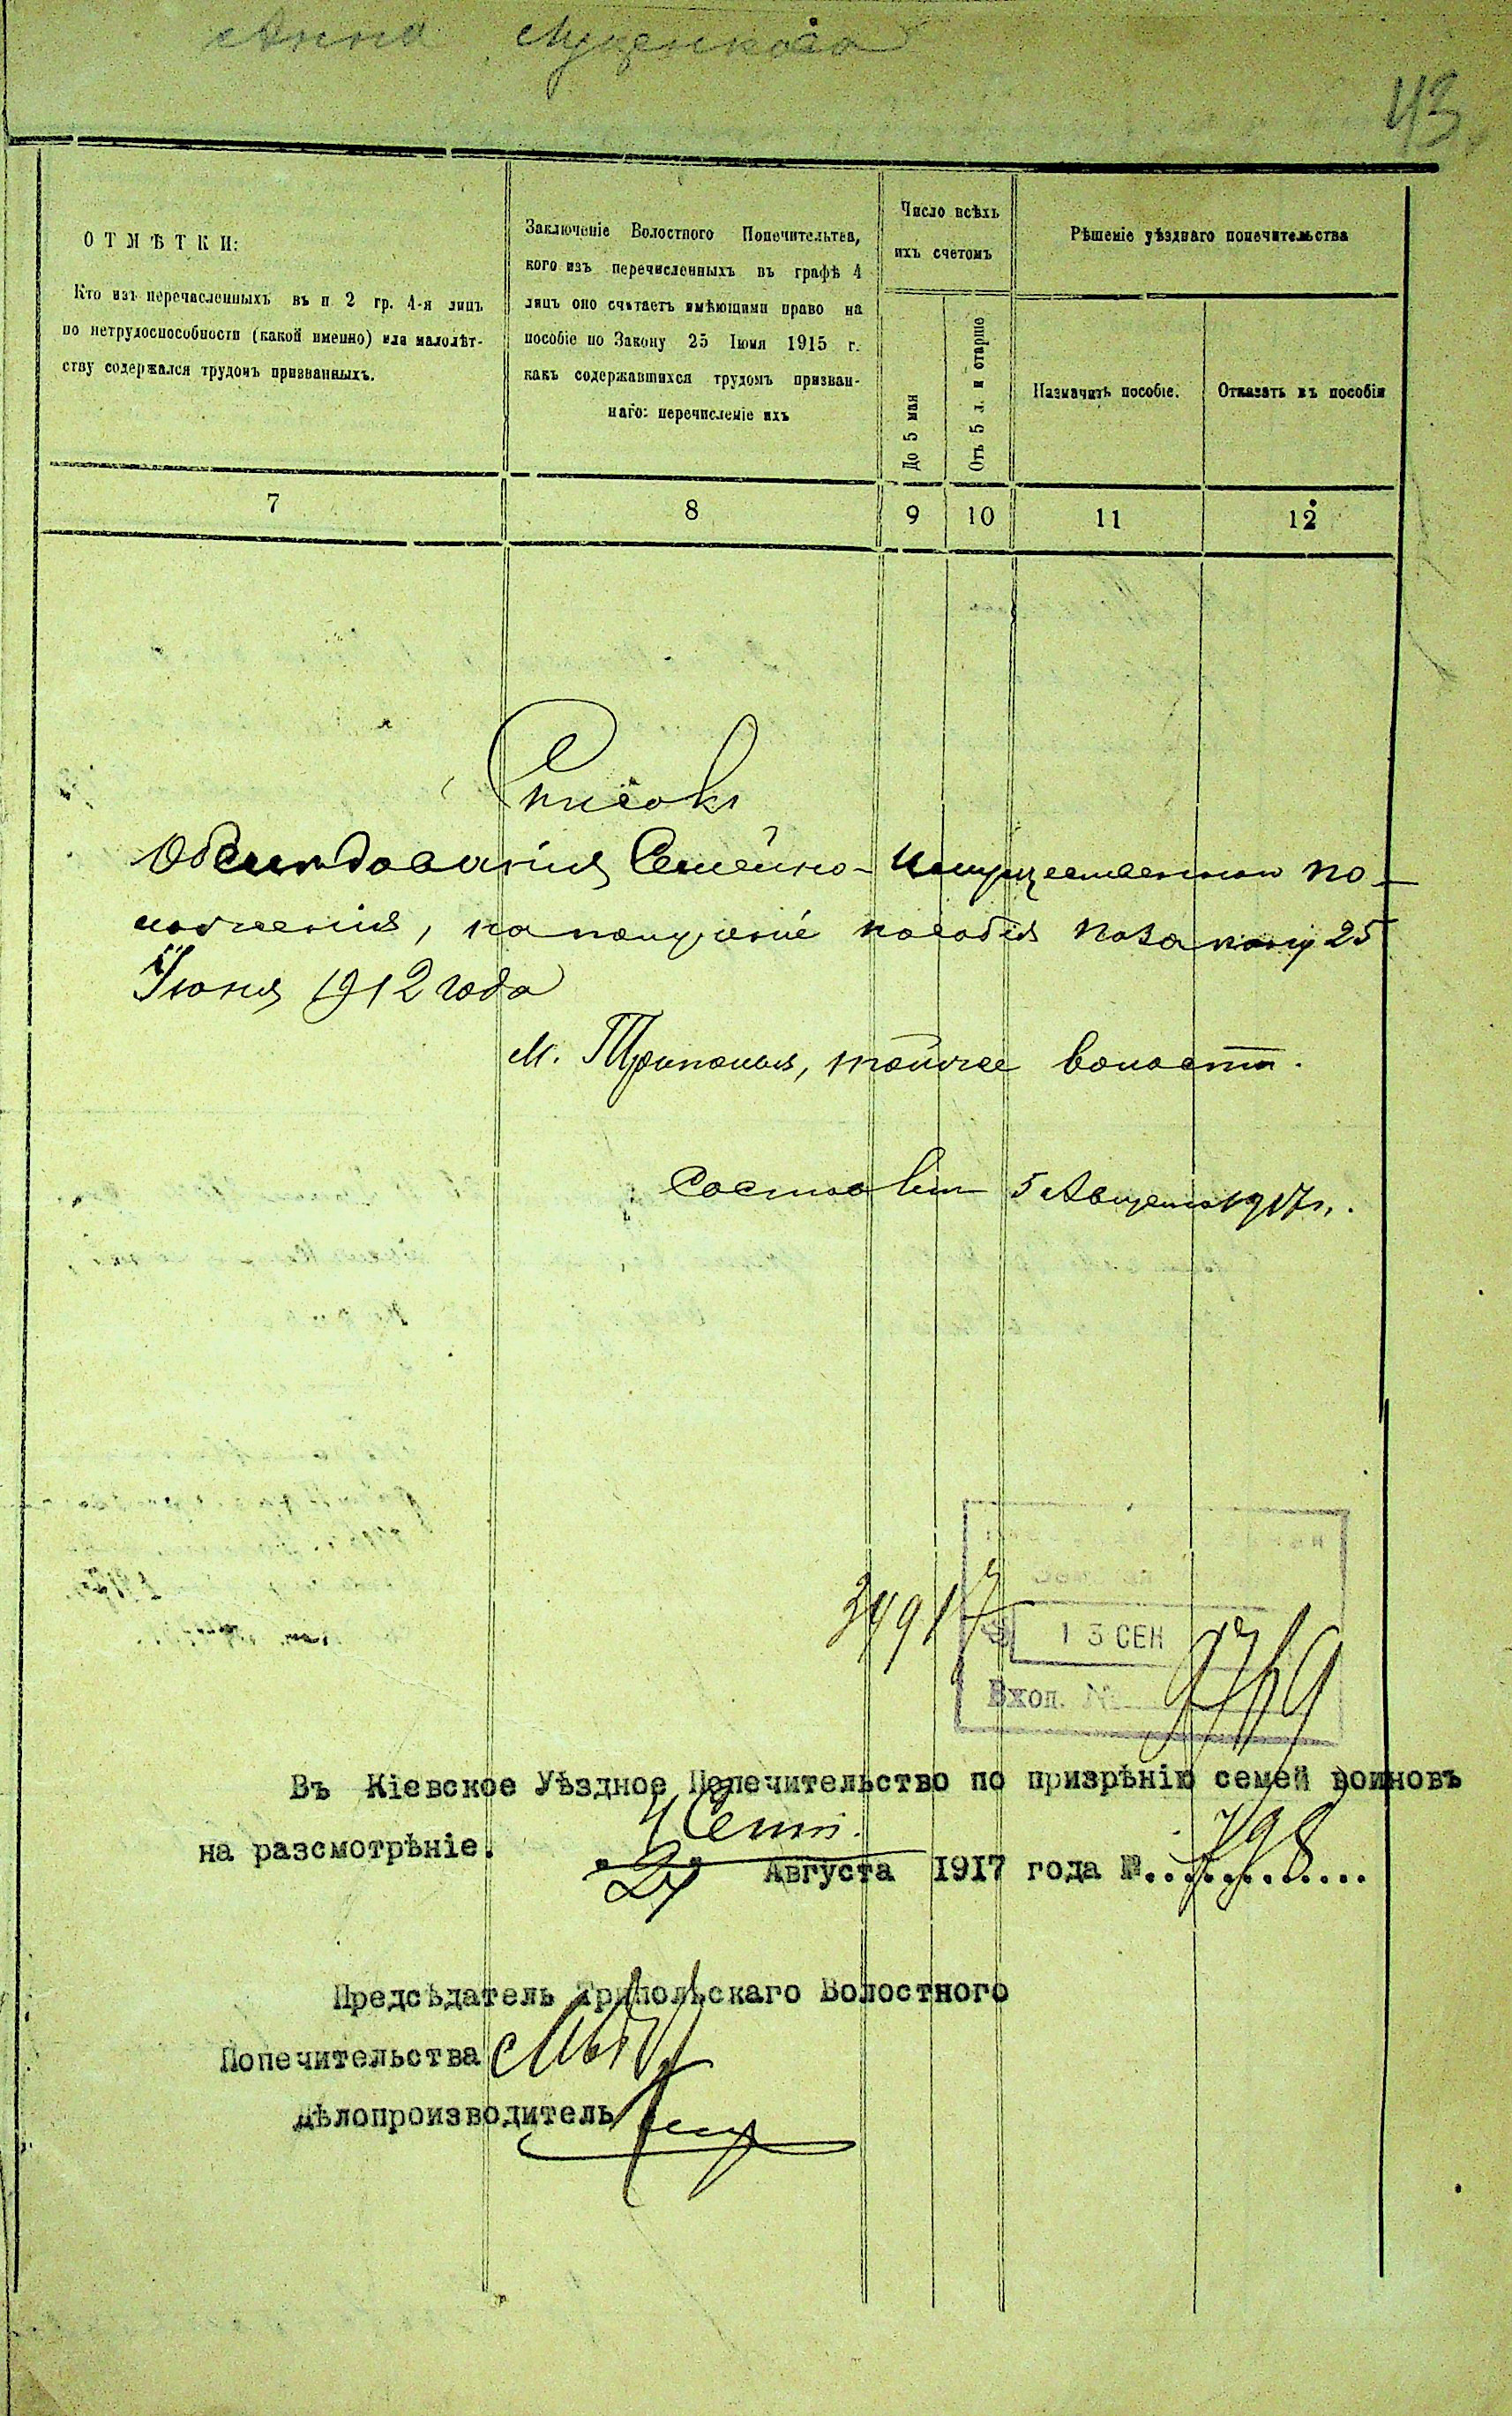 Анна Луценкова
43
ОТМѢТКИ:
Кто изъ перечисленныхъ въ п 2 гр. 4-я лицъ
по нетрудоспособности (какой именно) или малолѣт-
ству содержался трудомъ призванныхъ.
Заключеніе Волостного Попечительтва,
кого изъ перечисленныхъ въ графѣ 4
лицъ оно считаетъ имѣющими право на
пособіе по Закону 25 Іюня 1915 г.
какъ содержавшихся трудомъ призван-
наго: перечисленіе ихъ
Число всѣхъ
ихъ счетомъ
До 5 мая
Отъ 5 л. и старше
Рѣшеніе уѣзднаго попечительства
Назначить пособіе.
Отказать въ пособіи
7 8 9 10 11 12
Списокъ
Обслѣдованія Семейно-Имущественнаго по-
ложенія, на полученіе пособія по закону 25
Іюня 1912 года
м. Триполья, тойже волости.
Составленъ 5 Августа 1917 г.
13 СЕН
Вход. №
9769
Въ Кіевское Уѣздное Попечительство по призрѣнію семей воиновъ
на разсмотрѣніе.
4 Сент.
"27" Августа 1917 года №....798....
Предсѣдатель Трипольскаго Волостного
Попечительства
Дѣлопроизводитель